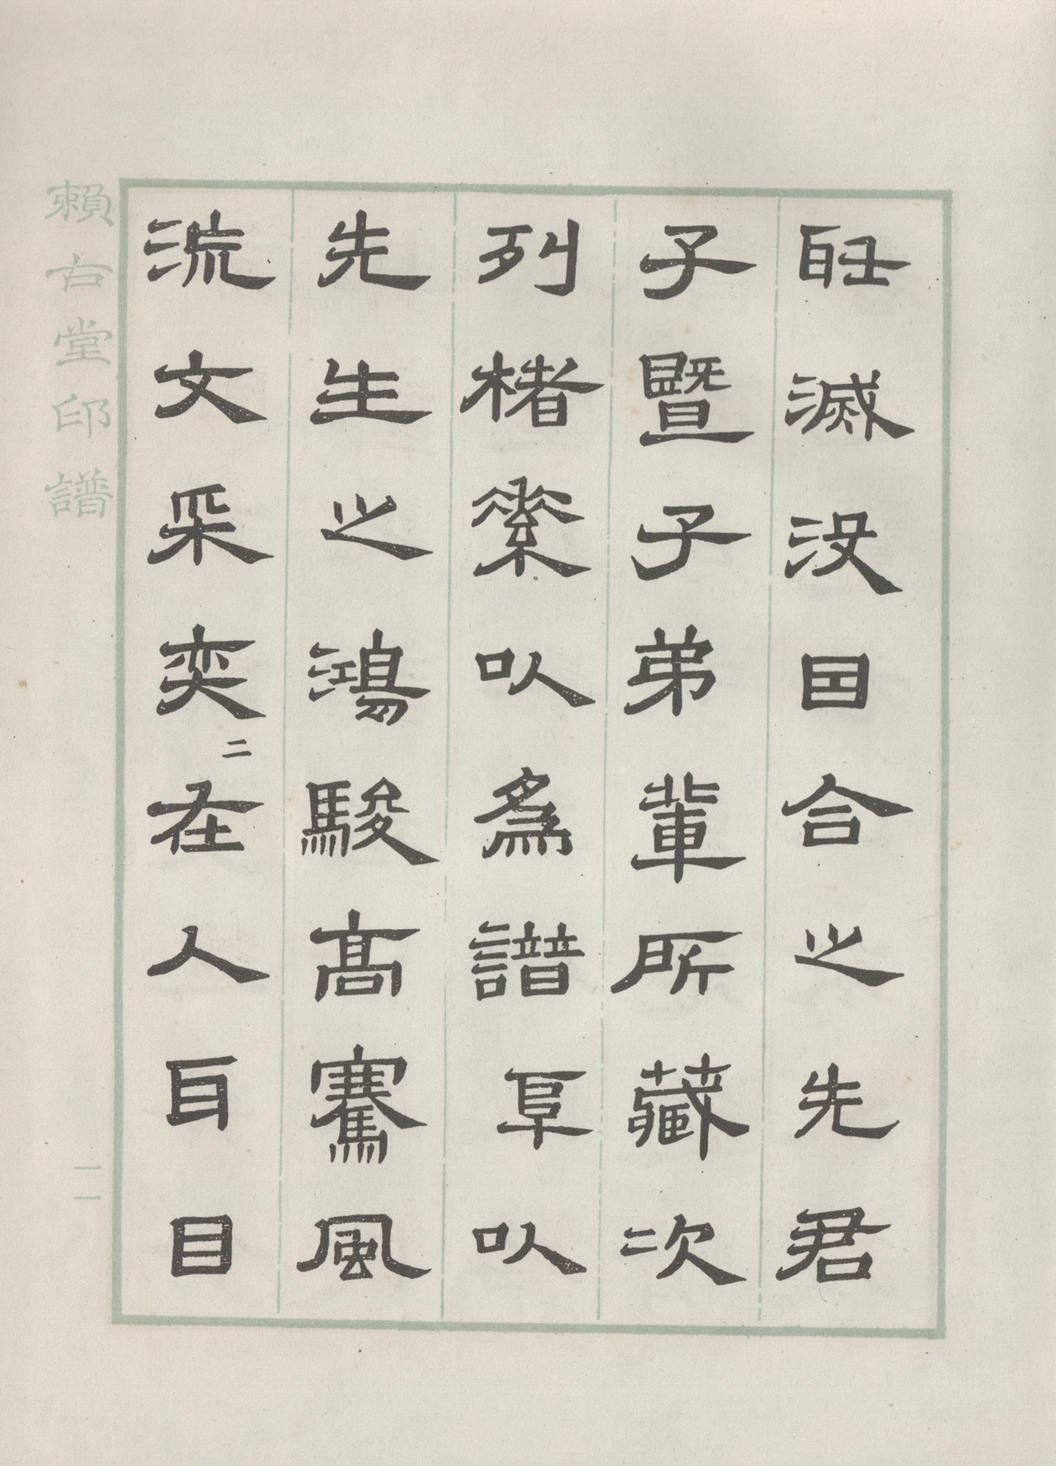 滅没囙合之先君
子暨子弟輩所藏次
列楮素以為譜阜以
先生之鴻駿高騫風
流文采奕二在人耳目
賴古堂印譜
二